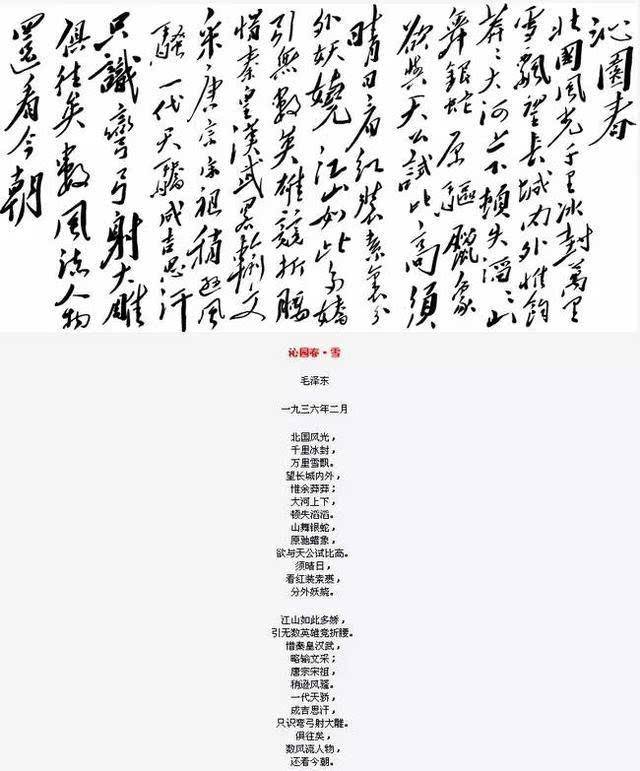 沁園春
北國風光千里冰封萬里
雪飄望長城內外惟餘
莽〻大河上下頓失滔〻山
舞銀蛇原驅臘象
欲與天公試比高須
晴日看紅裝素裹分
外妖嬈江山如此多嬌
引無數英雄競折腰
惜秦皇漢武略輸文
采唐宗宋祖稍遜風
騷一代天驕成吉思汗
只識彎弓射大雕
俱往矣數風流人物
還看今朝
沁园春·雪
毛泽东
一九三六年二月
北国风光，
千里冰封，
万里雪飘。
望长城内外，
惟余莽莽；
大河上下，
顿失滔滔。
山舞银蛇，
原驰蜡象，
欲与天公试比高。
须晴日，
看红装素裹，
分外妖娆。
江山如此多娇，
引无数英雄竞折腰。
惜秦皇汉武，
略输文采；
唐宗宋祖，
稍逊风骚。
一代天骄，
成吉思汗，
只识弯弓射大雕。
俱往矣，
数风流人物，
还看今朝。